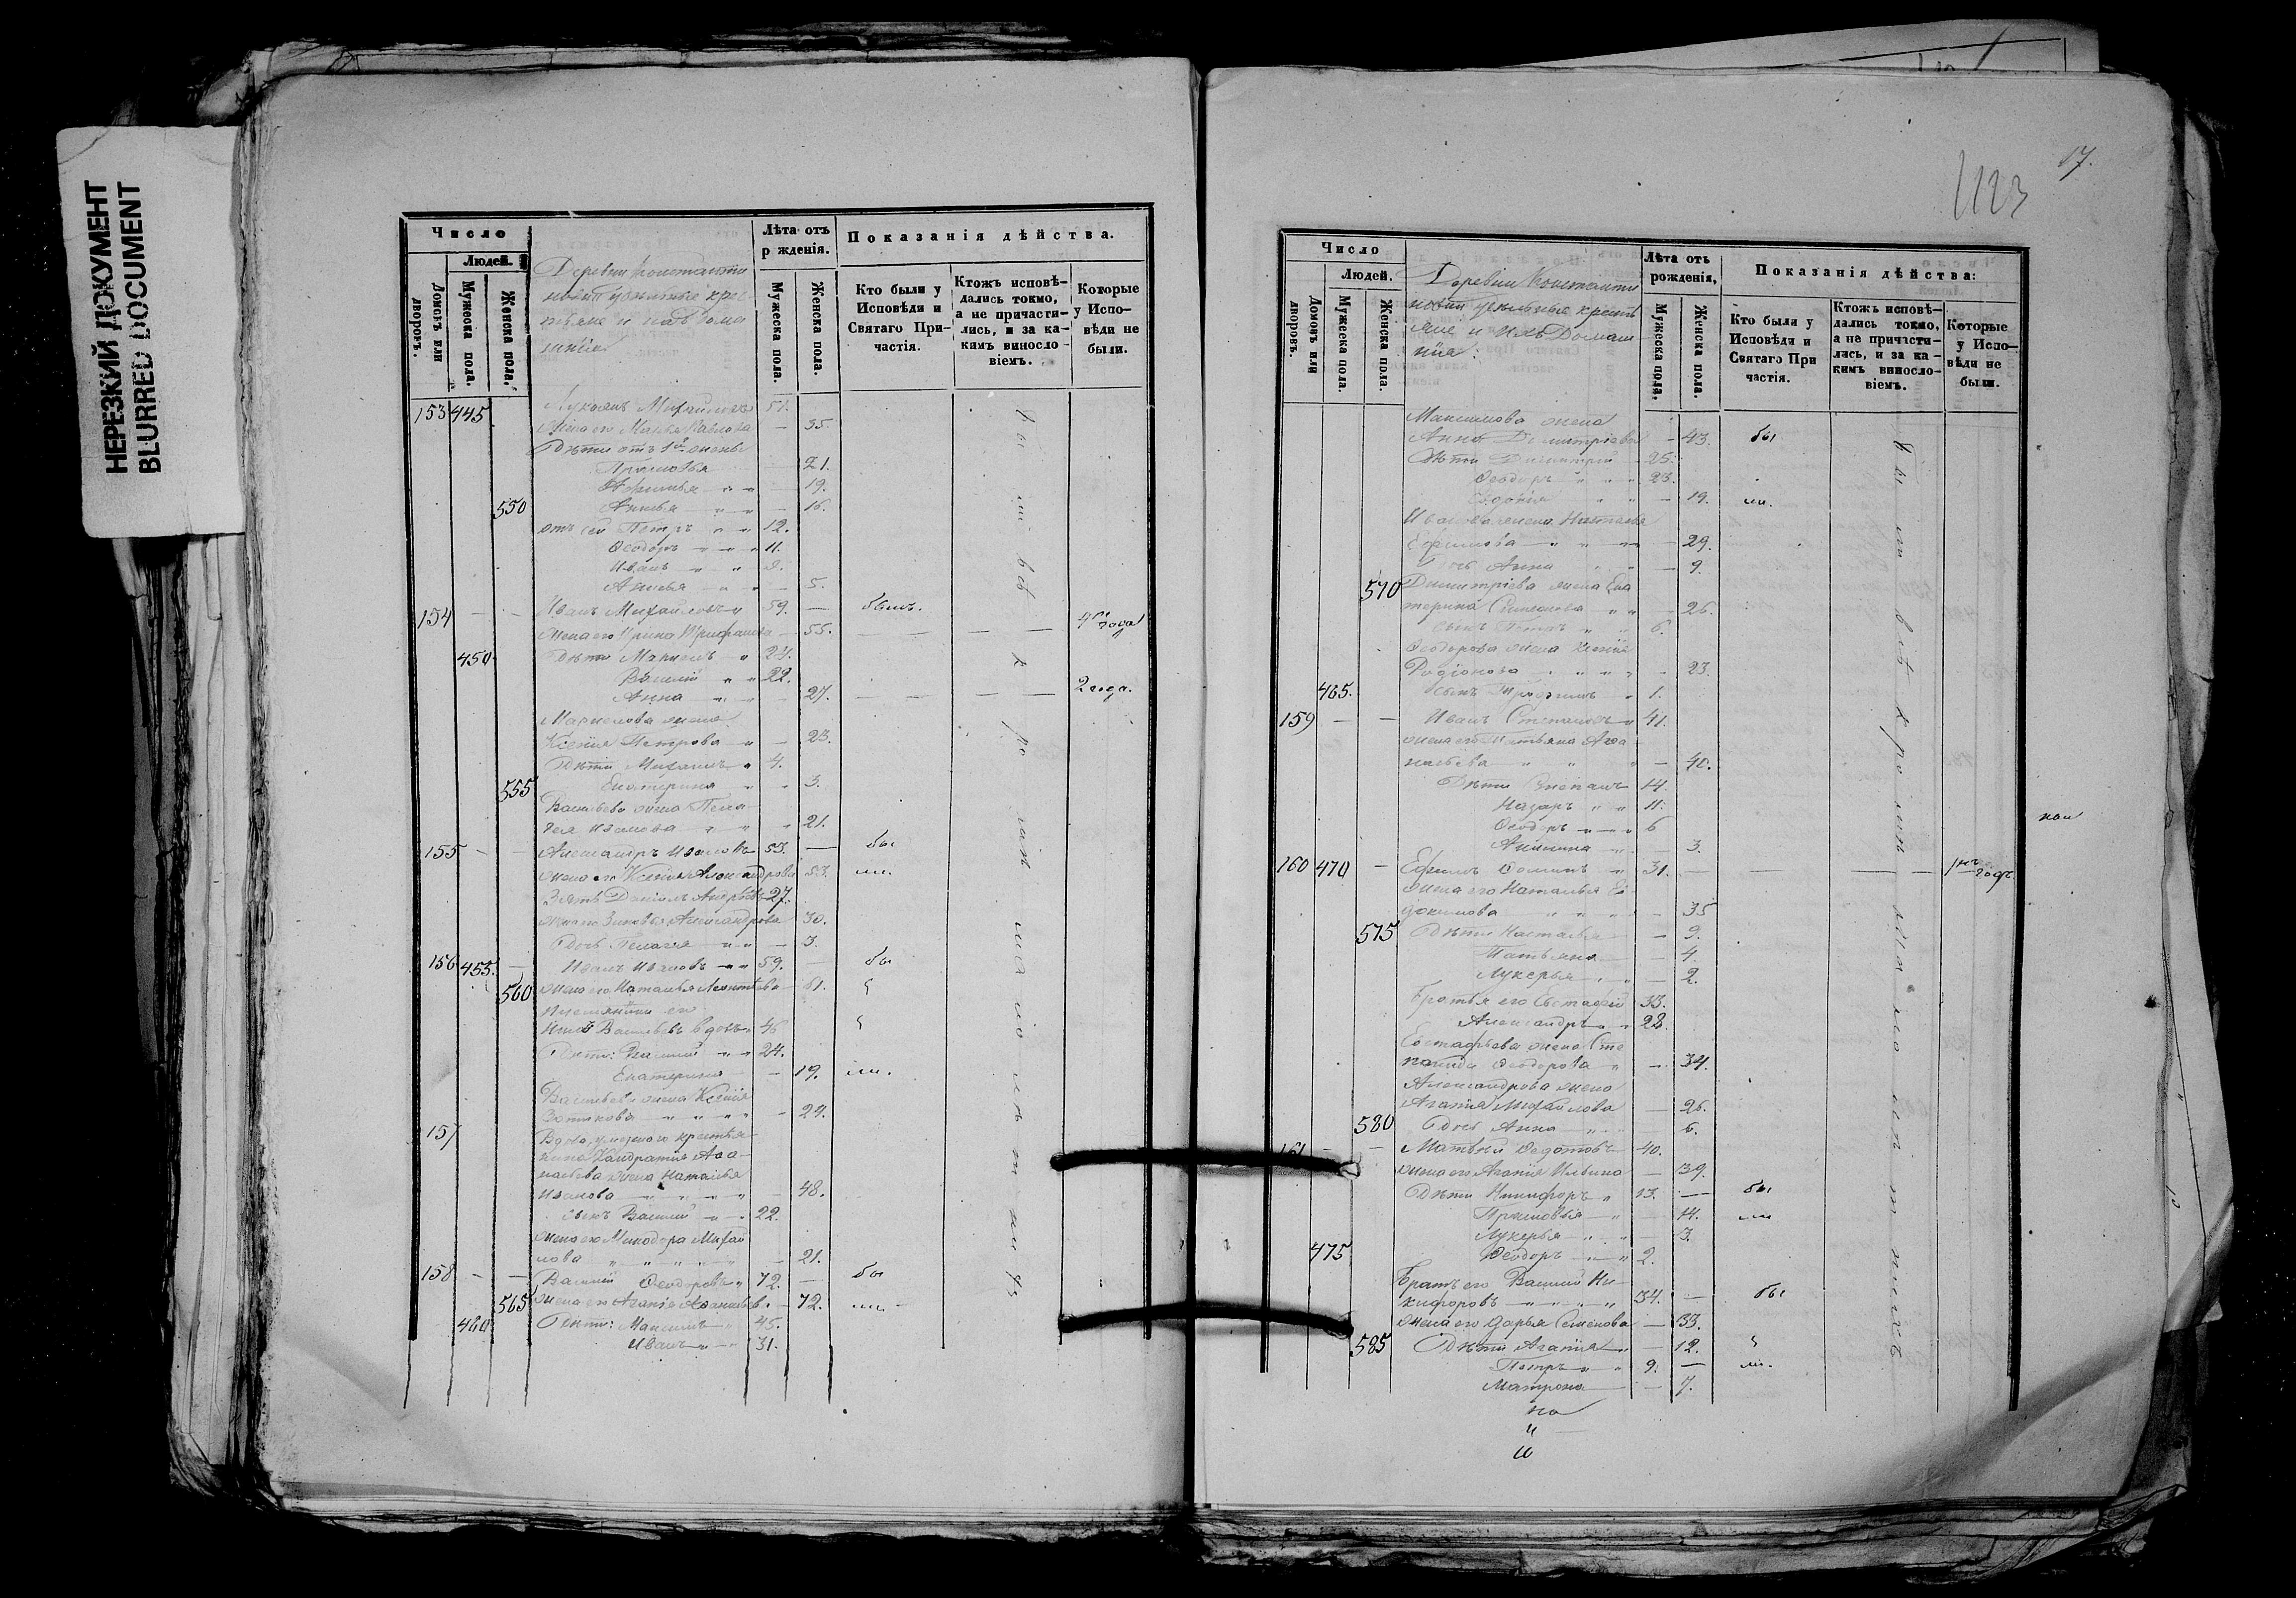 НЕРЕЗКИЙ ДОКУМЕНТ
BLURRED DOCUMENT
Число
Людей.
Домовъ или дворовъ.
Мужеска пола.
Женска пола.
Деревни Константи
новки удѣльные крес
тьяне и ихъ дома
шніе
Лѣта отъ рожденія.
Мужеска пола.
Женска пола.
Показанія дѣйства.
Кто были у Исповѣди и Святаго Причастія.
Ктожъ исповѣдались токмо, а не причастились, и за какимъ винословіемъ.
Которые у Исповѣди не были.
153 445 Лукьянъ Михайловъ 51.
жена его Марья Павлова — 35.
Дѣти отъ 1й жены
Прасковья 21.
19.
550 Анисья — 16.
отъ сей Петръ 12.
Ѳеодоръ 11.
Иванъ
Анисья — 5.
154 — — Иванъ Михайловъ 59. — былъ.
жена его Ирина Трифанова — 55. — — — года
450 Дѣти 24.
Василій 22.
Анна — 27. — — — — 2 года.
жена
Ксенія Петрова — 23.
Дѣти Михаилъ 4.
555 Екатерина 3.
Васильева жена Пела
гея Иванова 21.
155 — — Александръ Ивановъ 53. — бы
жена его Ксенія Александрова 53. ли.
Зять Даніилъ Андреевъ 27.
жена его Зиновья Александрова 30.
Дочь Пелагея — 3.
156 455. — Иванъ Ивановъ 59. — бы
560 жена его Наталья Леонтьева 61.
племянникъ его
Васильевъ вдовъ 46
Дѣти: Василій 24.
Екатерина — 19. ли.
Васильева жена Ксенія
Зотикова — 24.
157 Вдова, умершаго крестья
нина Кондратія Аѳа
насьева жена Наталья
Иванова — 48.
сынъ Василій 22.
жена его Минодора Михай
лова — 21.
158 — — Василій Ѳеодоровъ 72. — бы
565 жена его Агапія Аѳанасьев. — 72. ли —
460 Дѣти: Максимъ 45.
Иванъ 31.
17.
1123
Число
Людей.
Домовъ или дворовъ.
Мужеска пола.
Женска пола.
Деревни Константи
новки удѣльные кресть
яне и ихъ Домаш
ніе:
Лѣта отъ рожденія,
Мужеска пола.
Женска пола.
Показанія дѣйства:
Кто были у Исповѣди и Святаго Причастія.
Ктожъ исповѣдались токмо, а не причастились, и за какимъ винословіемъ.
Которые у Исповѣди не были.
Максимова жена
Анна Димитріева — 43. бы
Дѣти Димитрій 25.
Ѳеодоръ 23.
— 19. ли.
Иванова жена Наталья
Ефимова — 29.
Дочь Анна — 9.
570 Димитріева жена Ека
терина Симеонова — 26.
сынъ Петръ 6.
Ѳеодорова жена Ксенія
Родіонова — 23.
465. сынъ Трофимъ 1.
159 — — Иванъ Степановъ 41.
жена его Татьяна Аѳа
насьева — 40.
Дѣти Степанъ 14.
Назаръ 11.
Ѳеодоръ 6
Акилина — 3.
160 470 — Ефимъ Ѳоминъ 31. — — — 1нъ годъ.
жена его Наталья Ев
докимова — 35
575 Дѣти Настасья — 9.
Татьяна — 4.
Лукерья — 2.
Братья его Евстафій 33.
Александръ 28.
Евстафьева жена Сте
панида Ѳеодорова — 34.
Александрова жена
Агапія Михайлова — 26.
580 Дочь Анна — 6.
161 — — Матвѣй Ѳедотовъ 40.
жена его Агапія Ильина — 39.
Дѣти Никифоръ 13. — бы
Прасковья — 14. ли
Лукерья — 3.
475 Ѳеодоръ 2.
Братъ его Василій Ни
кифоровъ 34. — бы
жена его Дарья Семенова — 33.
585 Дѣти Агапія — 12.
Петръ 9. — ли.
Матрона — 7.